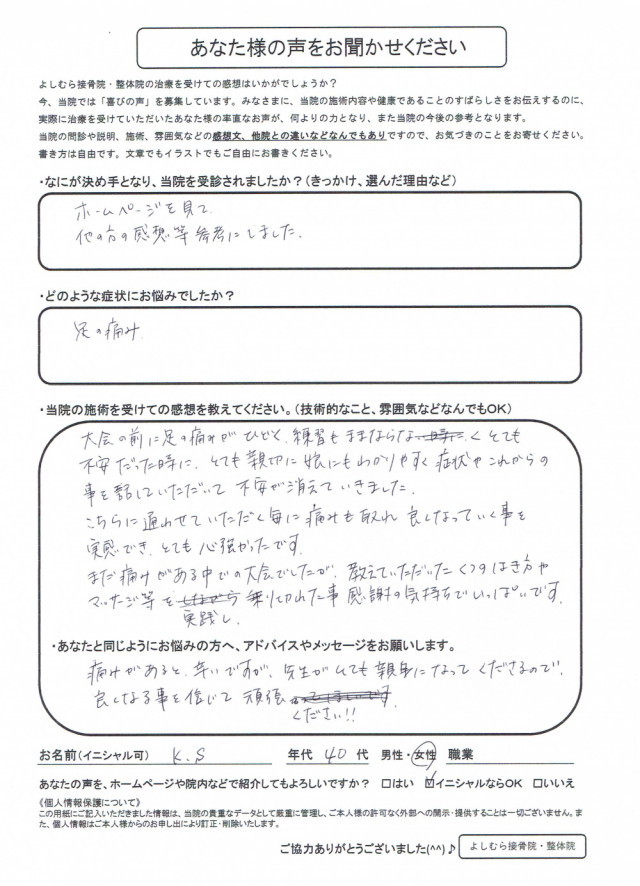 あなた様の声をお聞かせください
よしむら接骨院・整体院の治療を受けての感想はいかがでしょうか？
今、当院では「喜びの声」を募集しています。みなさまに、当院の施術内容や健康であることのすばらしさをお伝えするのに、
実際に治療を受けていただいたあなた様の率直なお声が、何よりの力となり、また当院の今後の参考となります。
当院の問診や説明、施術、雰囲気などの感想文、他院との違いなどなんでもありですので、お気づきのことをお寄せください。
書き方は自由です。文章でもイラストでもご自由にお書きください。
・なにが決め手となり、当院を受診されましたか？（きっかけ、選んだ理由など）
ホームページを見て.
他の方の感想等参考にしました.
・どのような症状にお悩みでしたか？
足の痛み.
・当院の施術を受けての感想を教えてください。（技術的なこと、雰囲気などなんでもOK）
大会の前に足の痛みがひどく、練習もままならなく とても
不安だった時に、とても親切に娘にもわかりやすく症状やこれからの
事を話していただいて 不安が消えていきました.
こちらに通わせていただく毎に痛みも取れ 良くなっていく事を
実感でき、とても心強かったです.
まだ痛みがある中での大会でしたが、教えていただいたくつのはき方や
マッサージ等を 乗り切れた事 感謝の気持ちでいっぱいです.
実践し.
・あなたと同じようにお悩みの方へ、アドバイスやメッセージをお願いします。
痛みがあると、辛いですが、先生がとても親身になってくださるので.
良くなる事を信じて 頑張って
ください!!
お名前（イニシャル可） K.S 年代 40 代 男性・女性 職業
あなたの声を、ホームページや院内などで紹介してもよろしいですか？ □はい ☑イニシャルならOK □いいえ
《個人情報保護について》
この用紙にご記入いただきました情報は、当院の貴重なデータとして厳重に管理し、ご本人様の許可なく外部への開示・提供することは一切ございません。ま
た、個人情報はご本人様からのお申し出により訂正・削除いたします。
ご協力ありがとうございました(^^)♪ よしむら接骨院・整体院